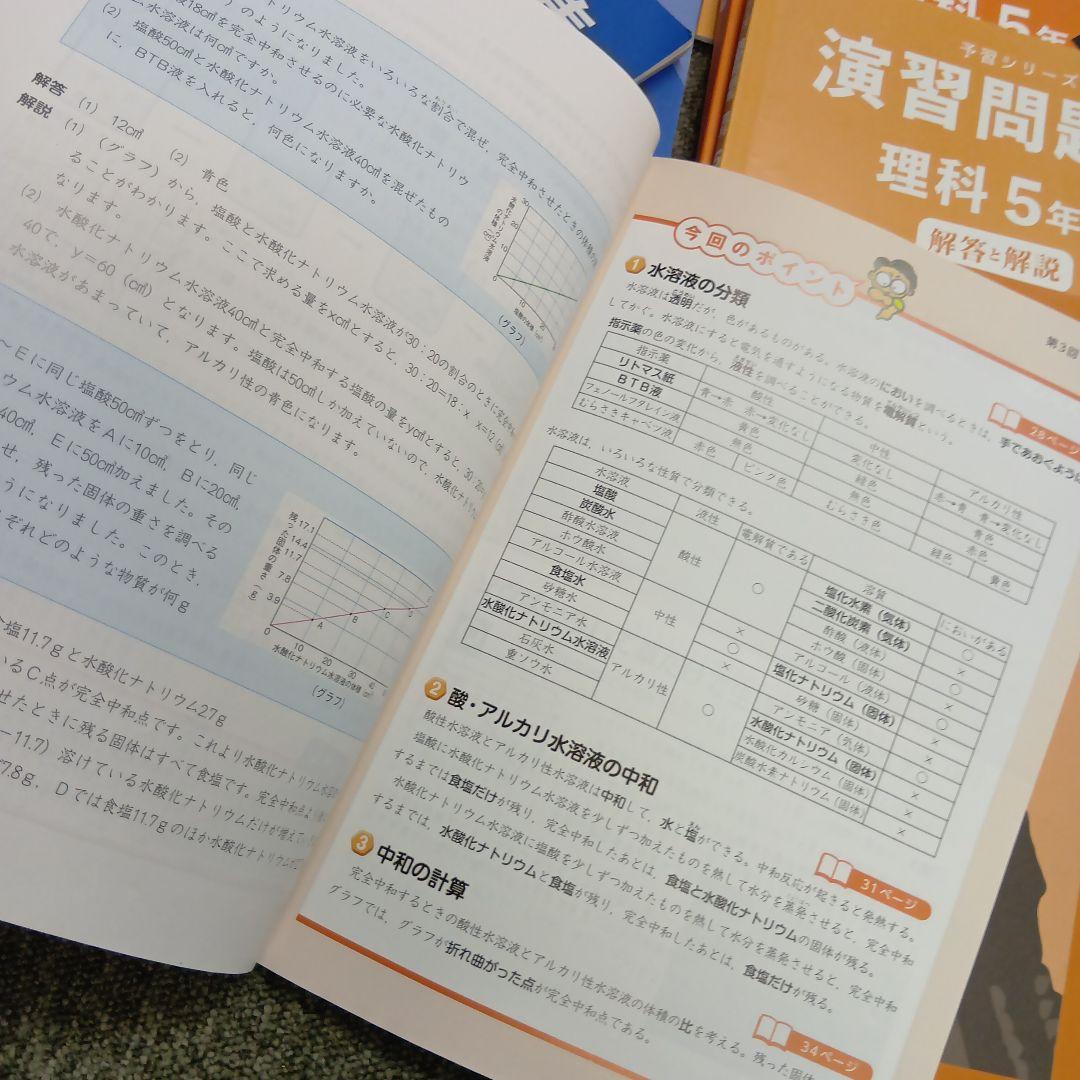 トリウム水溶液をいろいろな割合で混ぜ、完全中和させたときの体積の
のようになりました。
酸18cm³を完全中和させるのに必要な水酸化ナトリウ
ム水溶液は何cm³ですか。
(2) 塩酸50cm³と水酸化ナトリウム水溶液40cm³を混ぜたもの
に、BTB液を入れると、何色になりますか。
解答 (1) 12cm³ (2) 青色
解説 (1) (グラフ)から、塩酸と水酸化ナトリウム水溶液が30:20の割合のときに完全中和
ることがわかります。ここで求める量をxcm³とすると、30:20=18:x、x=12
なります。
(2) 水酸化ナトリウム水溶液40cm³と完全中和する塩酸の量をycm³とすると、30:20=
40で、y=60(cm³)となります。塩酸は50cm³しか加えていないので、水酸化ナトリ
水溶液があまっていて、アルカリ性の青色になります。
30
20
10
0
10
20
(グラフ)
~Eに同じ塩酸50cm³ずつをとり、同じ
ウム水溶液をAに10cm³、Bに20cm³、
40cm³、Eに50cm³加えました。その
せ、残った固体の重さを調べる
うになりました。このとき、
ぞれどのような物質が何g
残った固体の重さ(g)
17.1
14.4
11.7
7.8
3.9
0
A
B
C
10 20 30 40
水酸化ナトリウム水溶液の体積
(グラフ)
塩11.7gと水酸化ナトリウム27g
いるC点が完全中和点です。これより水酸化ナトリウム
せたときに残る固体はすべて食塩です。完全中和点より
-11.7) 溶けている水酸化ナトリウムだけが増えて
7.8g、Dでは食塩11.7gのほか水酸化ナトリウムが
予習シリーズ
演習問題
理科5年
解答と解説
科5年
第3回
今回のポイント
1 水溶液の分類
28ページ
水溶液は透明だが、色があるものがある。水溶液のにおいを調べるときは、手であおぐように
してかぐ。水溶液にすると電気を通すようになる物質を電解質という。
指示薬の色の変化から、液性を調べることができる。
指示薬 酸性 中性 アルカリ性
リトマス紙 青→赤 赤→変化なし 変化なし 赤→青 青→変化なし
BTB液 黄色 緑色 青色
フェノールフタレイン液 無色 無色 赤色
むらさきキャベツ液 赤色 ピンク色 むらさき色 緑色 黄色
水溶液は、いろいろな性質で分類できる。
水溶液 液性 電解質である 溶質 においがある
塩酸 酸性 ○ 塩化水素(気体) ○
炭酸水 二酸化炭素(気体) ×
酢酸水溶液 酢酸(液体) ○
ホウ酸水 ホウ酸(固体) ×
アルコール水溶液 中性 × アルコール(液体) ○
食塩水 ○ 塩化ナトリウム(固体) ×
砂糖水 × 砂糖(固体) ×
アンモニア水 アルカリ性 ○ アンモニア(気体) ○
水酸化ナトリウム水溶液 水酸化ナトリウム(固体) ×
石灰水 水酸化カルシウム(固体) ×
重ソウ水 炭酸水素ナトリウム(固体) ×
2 酸・アルカリ水溶液の中和
31ページ
酸性水溶液とアルカリ性水溶液は中和して、水と塩ができる。中和反応が起きると発熱する。
塩酸に水酸化ナトリウム水溶液を少しずつ加えたものを熱して水分を蒸発させると、完全中和
するまでは食塩だけが残り、完全中和したあとは、食塩と水酸化ナトリウムの固体が残る。
水酸化ナトリウム水溶液に塩酸を少しずつ加えたものを熱して水分を蒸発させると、完全中和
するまでは、水酸化ナトリウムと食塩が残り、完全中和したあとは、食塩だけが残る。
3 中和の計算
34ページ
完全中和するときの酸性水溶液とアルカリ性水溶液の体積の比を考える。残った固体
グラフでは、グラフが折れ曲がった点が完全中和点である。